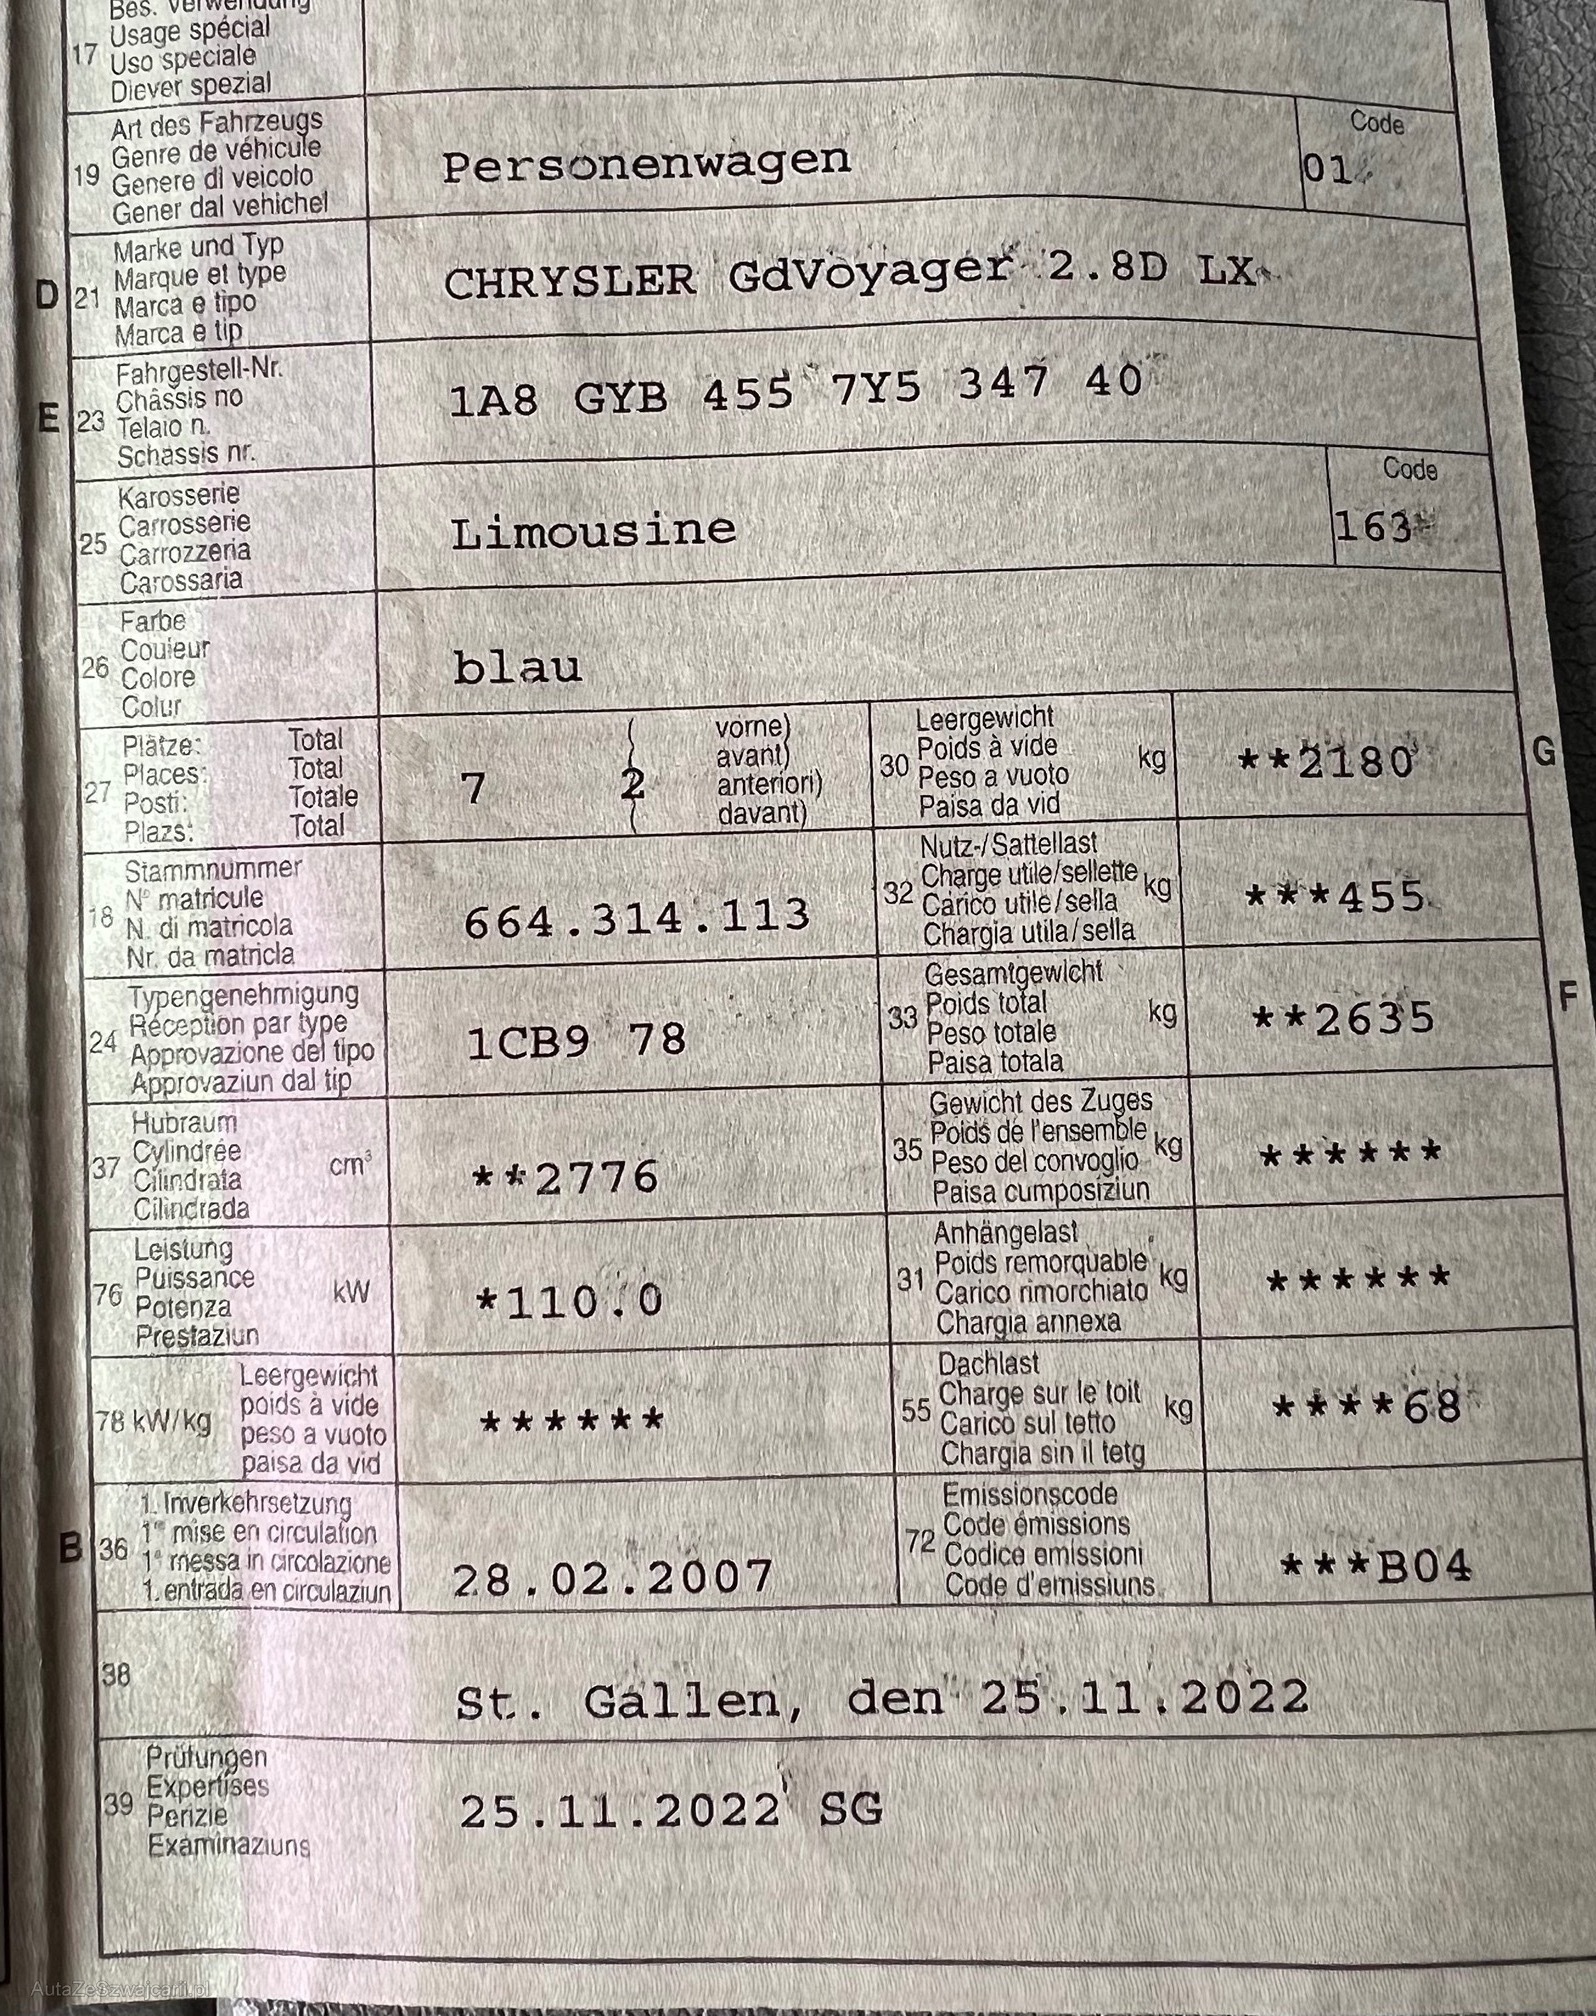 Bes. Verwendung
17 Usage spécial
Uso speciale
Diever spezial
Art des Fahrzeugs
19 Genre de véhicule
Genere di veicolo
Gener dal vehichel
Personenwagen
Code
01
D 21 Marke und Typ
Marque et type
Marca e tipo
Marca e tip
CHRYSLER GdVoyager 2.8D LX
E 23 Fahrgestell-Nr.
Châssis no
Telaio n.
Schassis nr.
1A8 GYB 455 7Y5 347 40
25 Karosserie
Carrosserie
Carrozzeria
Carossaria
Limousine
Code
163
26 Farbe
Couleur
Colore
Colur
blau
27 Plätze: Total
Places: Total
Posti: Totale
Plazs: Total
7 ( 2 vorne)
avant)
anteriori)
davant)
30 Leergewicht
Poids à vide
Peso a vuoto
Paisa da vid
kg
**2180
G
18 Stammnummer
N° matricule
N. di matricola
Nr. da matricla
664.314.113
32 Nutz-/Sattellast
Charge utile/sellette
Carico utile/sella
Chargia utila/sella
kg
***455
24 Typengenehmigung
Réception par type
Approvazione del tipo
Approvaziun dal tip
1CB9 78
33 Gesamtgewicht
Poids total
Peso totale
Paisa totala
kg
**2635
F
37 Hubraum
Cylindrée
Cilindrata
Cilindrada
cm³
**2776
35 Gewicht des Zuges
Poids de l'ensemble
Peso del convoglio
Paisa cumposiziun
kg
******
76 Leistung
Puissance
Potenza
Prestaziun
kW
*110.0
31 Anhängelast
Poids remorquable
Carico rimorchiato
Chargia annexa
kg
******
78 kW/kg Leergewicht
poids à vide
peso a vuoto
paisa da vid
******
55 Dachlast
Charge sur le toit
Carico sul tetto
Chargia sin il tetg
kg
****68
B 36 1. Inverkehrsetzung
1re mise en circulation
1a messa in circolazione
1. entrada en circulaziun
28.02.2007
72 Emissionscode
Code émissions
Codice emissioni
Code d'emissiuns
***B04
38
St. Gallen, den 25.11.2022
39 Prüfungen
Expertises
Perizie
Examinaziuns
25.11.2022 SG
AutaZeSzwajcarii.pl